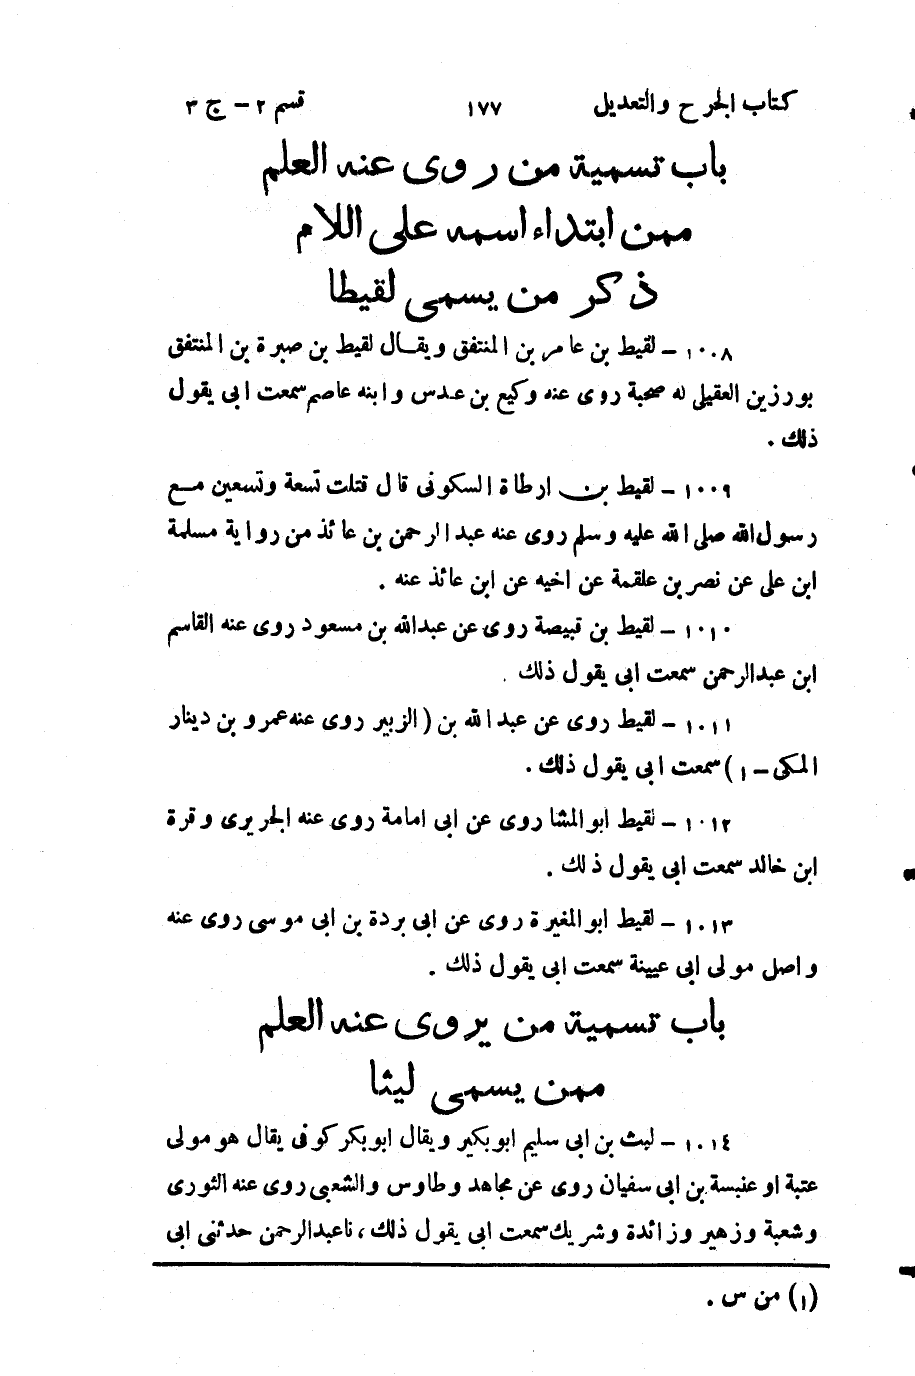 كتاب الجرح والتعديل ١٧٧ قسم ٢ - ج ٣
باب تسمية من روى عنه العلم
ممن ابتداء اسمه على اللام
ذكر من يسمى لقيطا
١٠٠٨ - لقيط بن عامر بن المنتفق ويقال لقيط بن صبرة بن المنتفق
بورزين العقيلى له صحبة روى عنه وكيع بن عدس وابنه عاصم سمعت ابى يقول
ذلك .
١٠٠٩ - لقيط بن ارطاة السكونى قال قتلت تسعة وتسعين مع
رسول الله صلى الله عليه وسلم روى عنه عبد الرحمن بن عائذ من رواية مسلمة
ابن على عن نصر بن علقمة عن اخيه عن ابن عائذ عنه .
١٠١٠ - لقيط بن قبيصة روى عن عبدالله بن مسعود روى عنه القاسم
ابن عبدالرحمن سمعت ابى يقول ذلك .
١٠١١ - لقيط روى عن عبد الله بن (الزبير روى عنه عمرو بن دينار
المكى - ١) سمعت ابى يقول ذلك .
١٠١٢ - لقيط ابو المشا روى عن ابى امامة روى عنه الجريرى وقرة
ابن خالد سمعت ابى يقول ذلك .
١٠١٣ - لقيط ابو المغيرة روى عن ابى بردة بن ابى موسى روى عنه
واصل مولى ابى عيينة سمعت ابى يقول ذلك .
باب تسمية من يروى عنه العلم
ممن يسمى ليثا
١٠١٤ - ليث بن ابى سليم ابو بكير ويقال ابو بكر كوفى يقال هو مولى
عتبة او عنبسة بن ابى سفيان روى عن مجاهد وطاوس والشعبى روى عنه الثورى
وشعبة وزهير وزائدة وشريك سمعت ابى يقول ذلك ، نا عبدالرحمن حدثنى ابى
(١) من س .